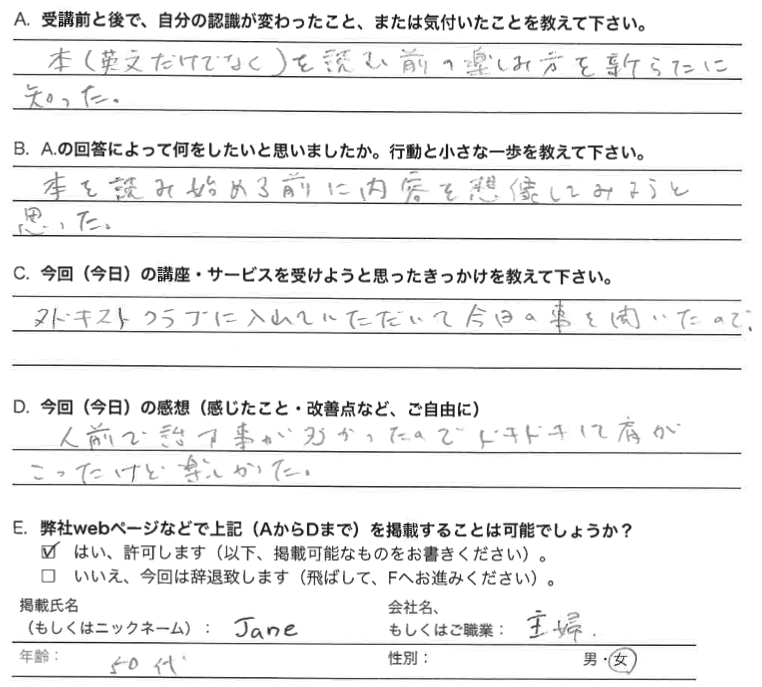 A. 受講前と後で、自分の認識が変わったこと、または気付いたことを教えて下さい。
本(英文だけでなく)を読む前の楽しみ方を新らたに
知った。
B. A.の回答によって何をしたいと思いましたか。行動と小さな一歩を教えて下さい。
本を読み始める前に内容を想像してみようと
思った。
C. 今回（今日）の講座・サービスを受けようと思ったきっかけを教えて下さい。
クラブに入れていただいて今日の事を聞いたので。
D. 今回（今日）の感想（感じたこと・改善点など、ご自由に）
人前で話す事が多かったのでドキドキして肩が
こったけど楽しかった。
E. 弊社webページなどで上記（AからDまで）を掲載することは可能でしょうか？
☑ はい、許可します（以下、掲載可能なものをお書きください）。
☐ いいえ、今回は辞退致します（飛ばして、Fへお進みください）。
掲載氏名 会社名、
（もしくはニックネーム）： Jane もしくはご職業： 主婦.
年齢： 50代 性別： 男・女